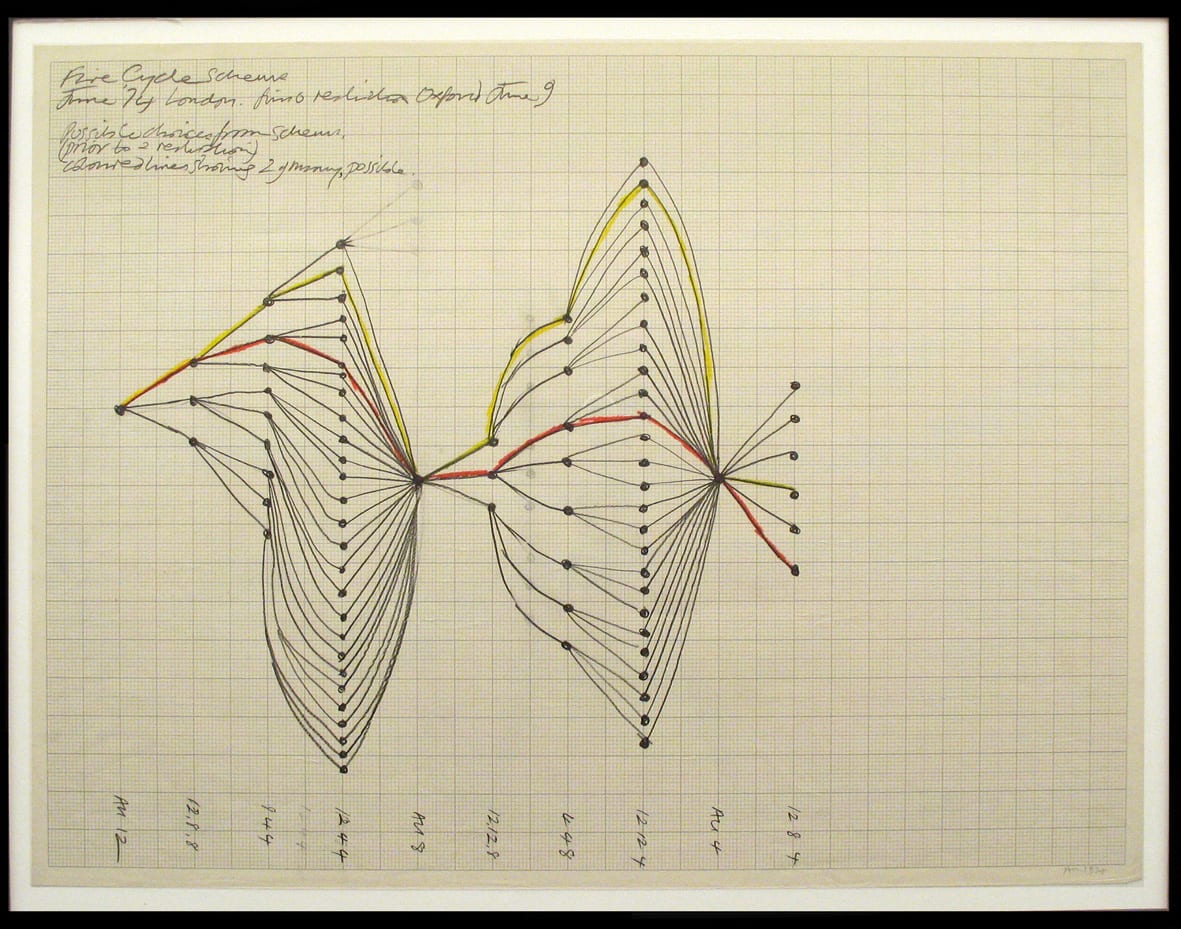 Fire Cycle Scheme
June '74 London. first realisation Oxford June 9
Possible choices from Scheme.
(prior to realisation)
coloured lines showing 2 of many, possible.
All 12
12.8.8
8 4 4
12 4 4
All 8
12.12.8
4 4 8
12 12 4
All 4
12 8 4